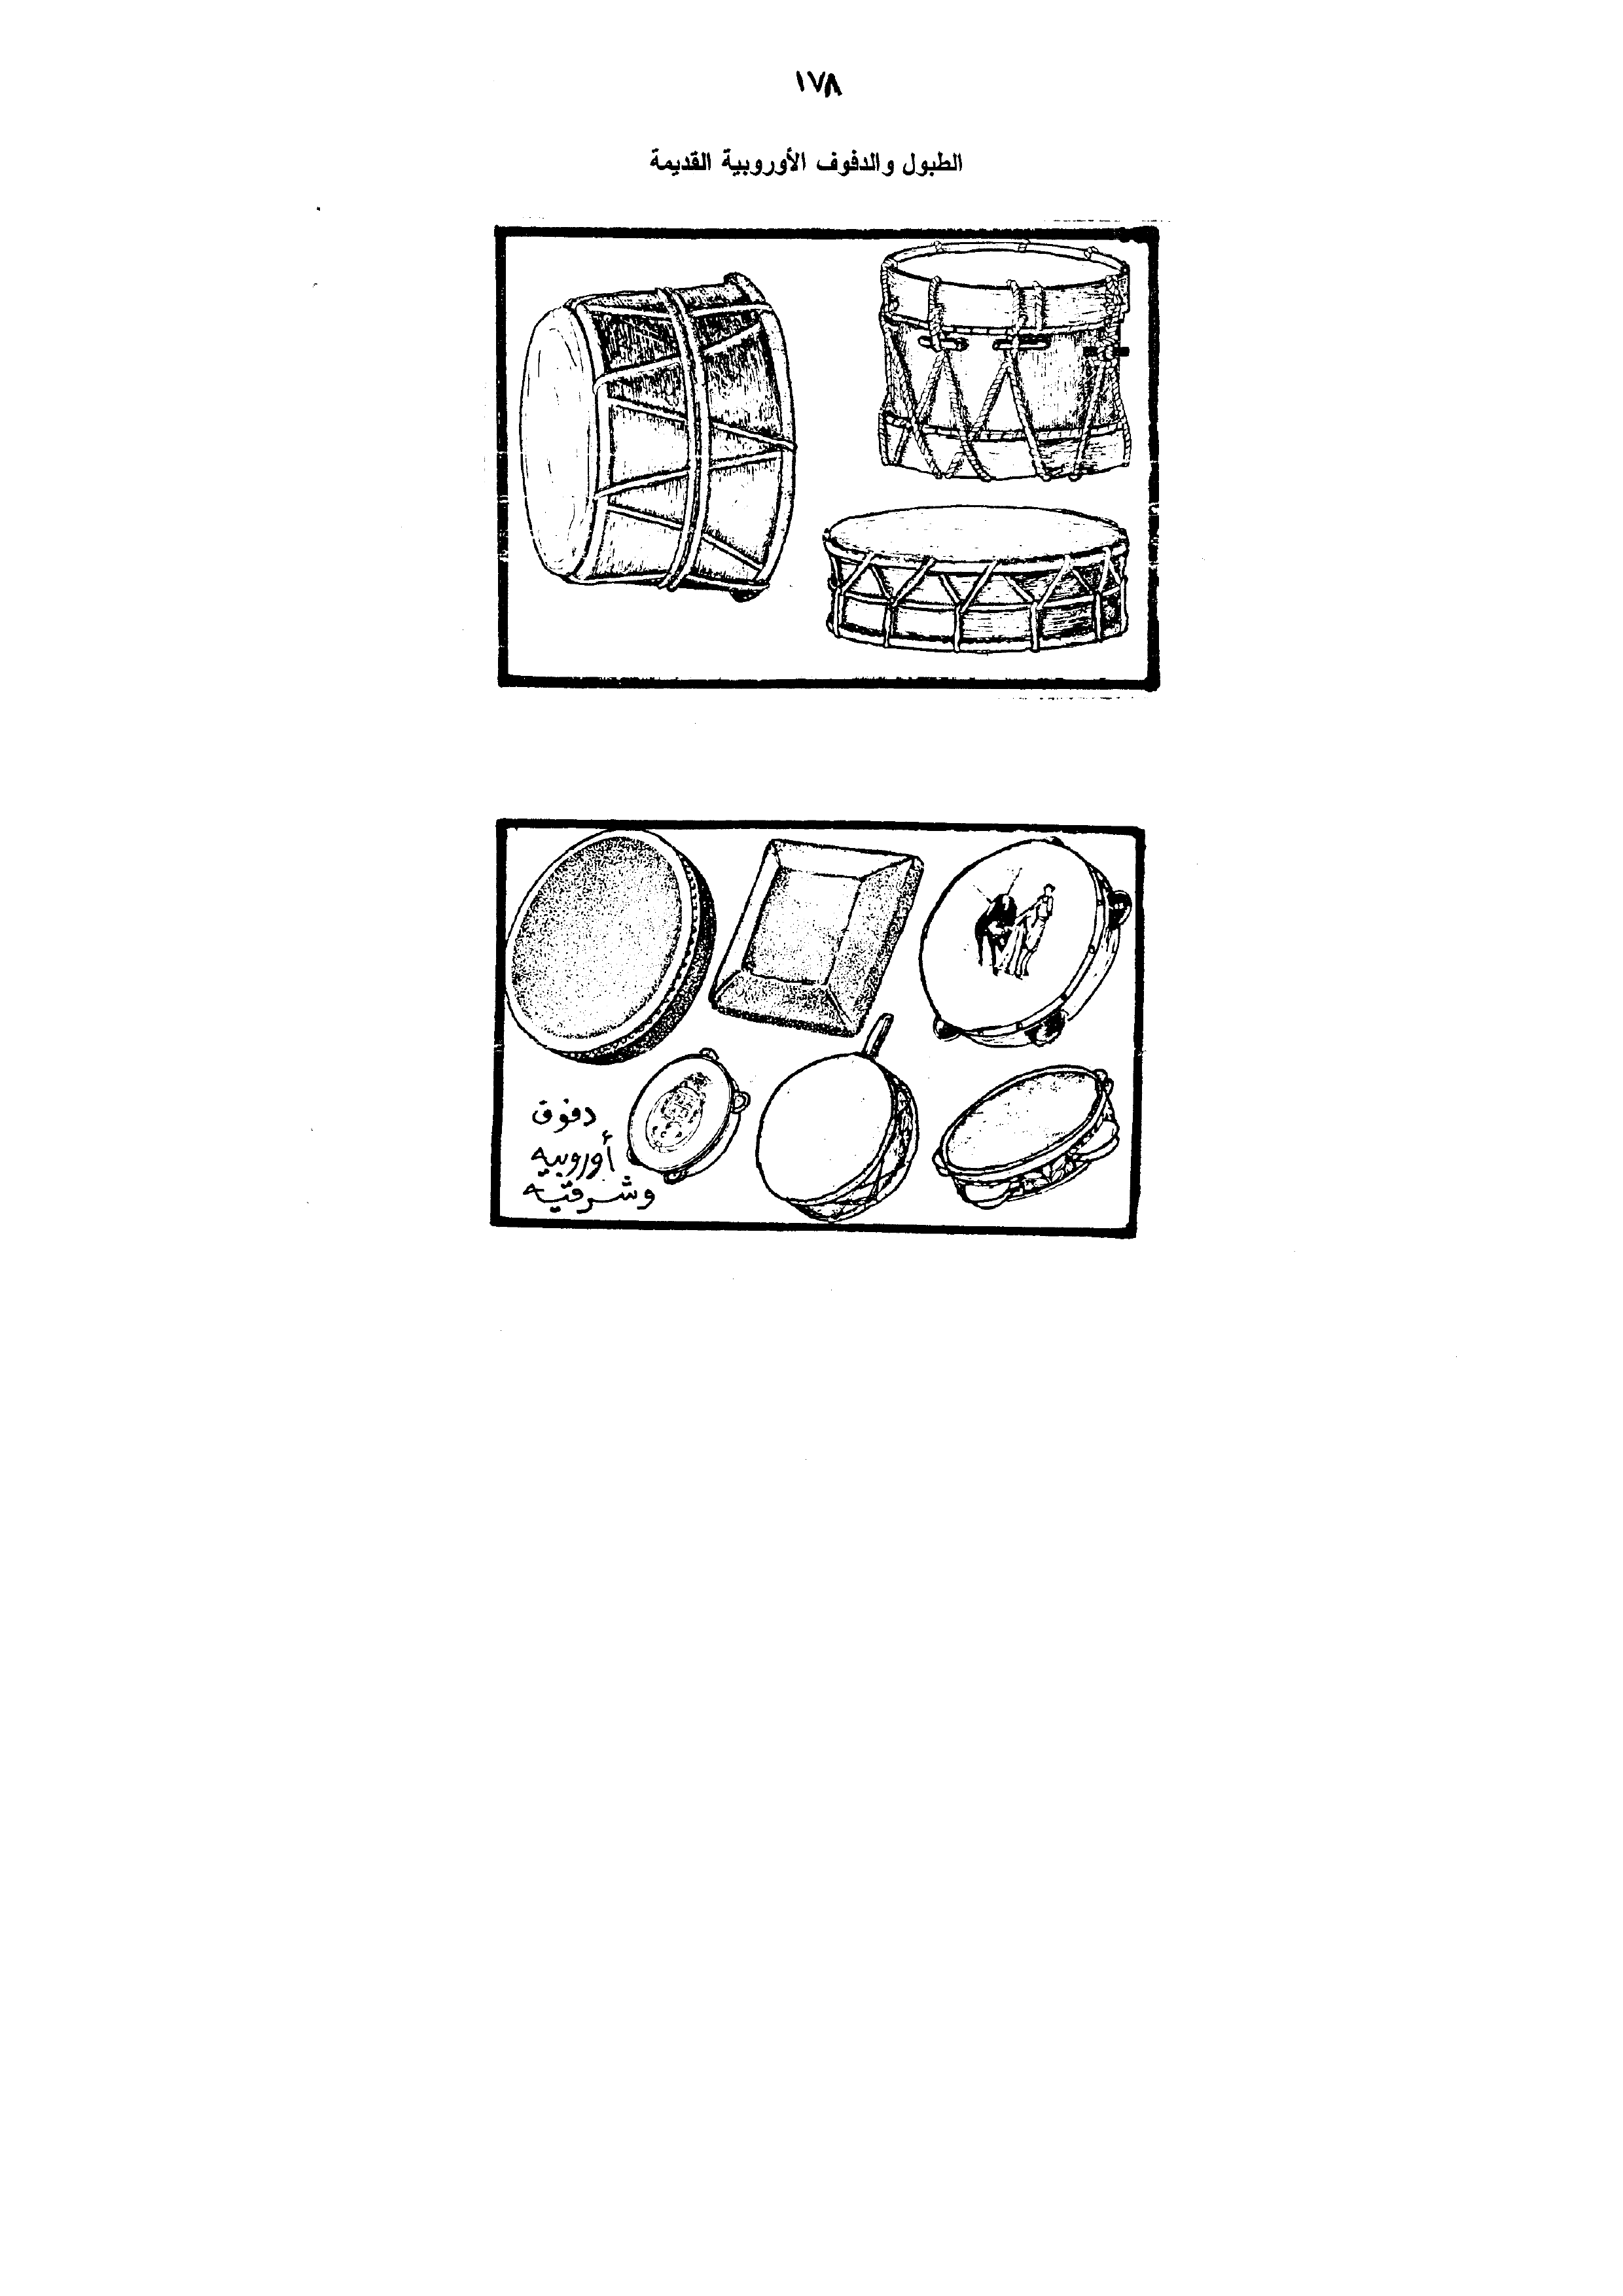 ١٧٨
الطبول والدفوف الأوروبية القديمة
دفوف
أوروبيه
وشرقيه